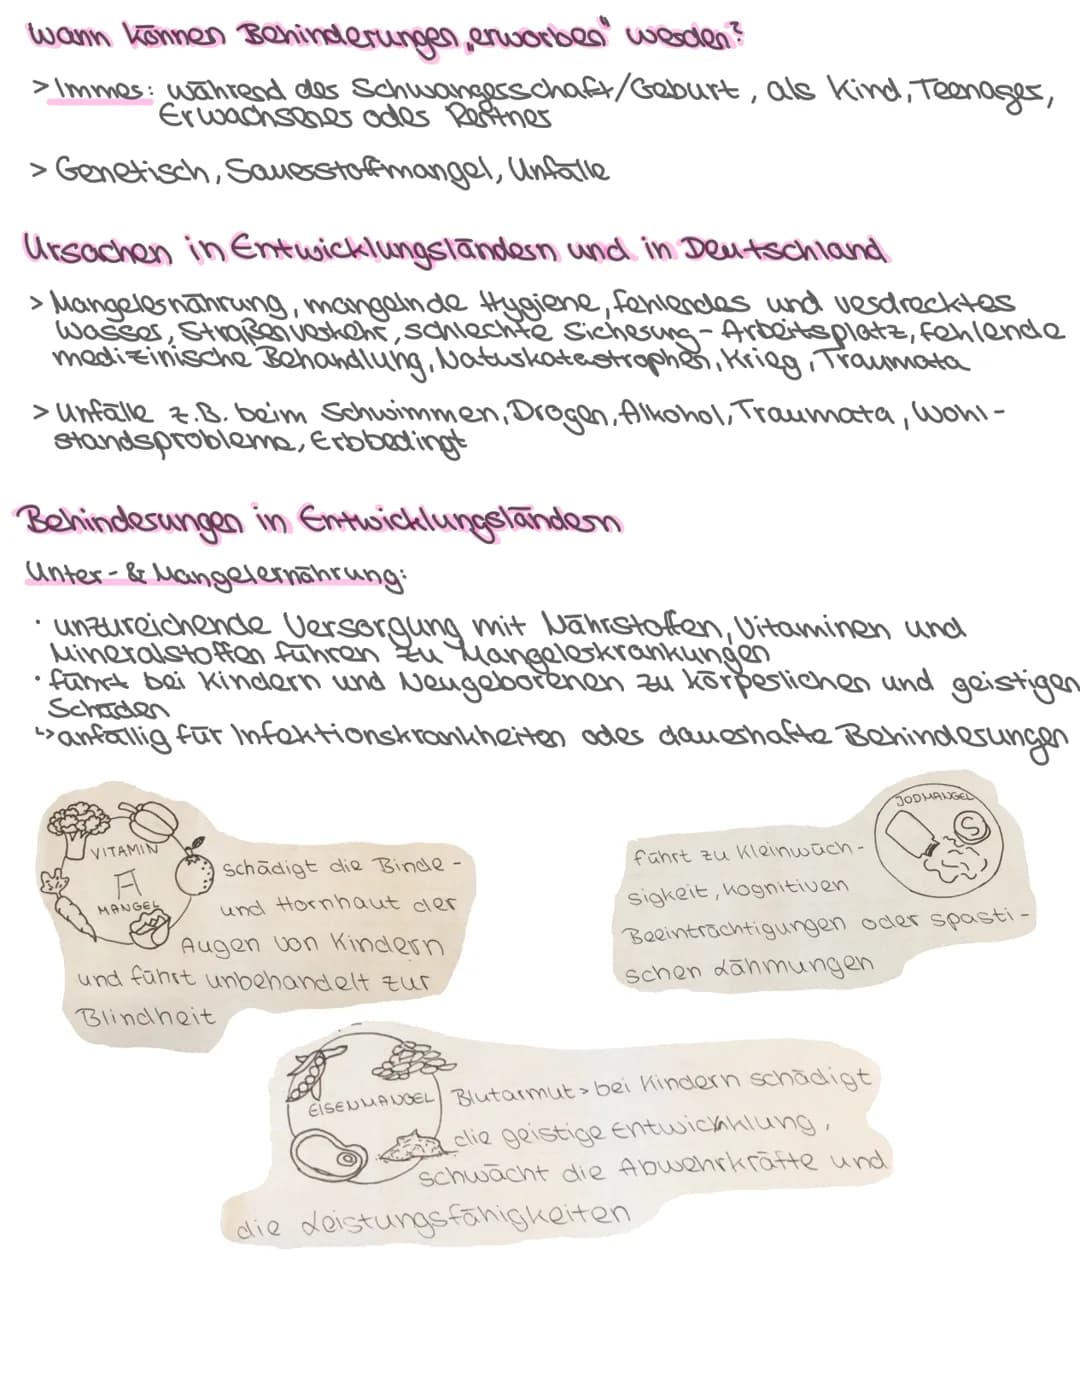 Wann können Behinderungen „erworben" werden?
> Immer: während der Schwangerschaft/Geburt, als Kind, Teenager,
Erwachsener oder Rentner
> Genetisch, Sauerstoffmangel, Unfälle
Ursachen in Entwicklungsländern und in Deutschland
> Mangelernährung, mangelnde Hygiene, fehlendes und verdrecktes
Wasser, Straßenverkehr, schlechte Sicherung - Arbeitsplatz, fehlende
medizinische Behandlung, Naturkatastrophen, Krieg, Traumata
> Unfälle z.B. beim Schwimmen, Drogen, Alkohol, Traumata, Wohl-
standsprobleme, Erbbedingt
Behinderungen in Entwicklungsländern
Unter- & Mangelernährung:
· unzureichende Versorgung mit Nährstoffen, Vitaminen und
Mineralstoffen führen zu Mangelerkrankungen
· führt bei Kindern und Neugeborenen zu körperlichen und geistigen
Schäden
↳ anfällig für Infektionskrankheiten oder dauerhafte Behinderungen
VITAMIN
A
MANGEL
schädigt die Binde-
und Hornhaut der
Augen von Kindern
und führt unbehandelt zur
Blindheit
JODMANGEL
S
führt zu Kleinwüch-
sigkeit, kognitiven
Beeinträchtigungen oder spasti-
schen Lähmungen
EISENMANGEL
Blutarmut > bei Kindern schädigt
die geistige Entwicklung,
schwächt die Abwehrkräfte und
die Leistungsfähigkeiten